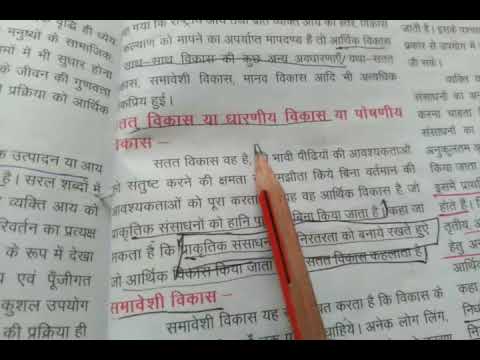 वृद्धि ही ध्येय
मनुष्यों के सामाजिक,
में भी सुधार होना
के जीवन की गुणवत्ता
प्रक्रिया को आर्थिक
उत्पादन या आय
है। सरल शब्दों में
व्यक्ति आय को
परिवर्तन का प्रत्यक्ष
के रूप में देखा
एवं पूँजीगत
कुशल उपयोग
की प्रक्रिया ही
गया कि राष्ट्रीय आय तथा प्रति व्यक्ति आय का स्तर, विकास
कल्याण को मापने का अपर्याप्त मापदण्ड है तो आर्थिक विकास
साथ-साथ विकास की कुछ अन्य अवधारणाएँ यथा-सतत
विकास, समावेशी विकास, मानव विकास आदि भी अत्यधिक
लोकप्रिय हुई।
सतत् विकास या धारणीय विकास या पोषणीय
विकास –
सतत विकास वह है, भावी पीढ़ियों की आवश्यकताओं
को संतुष्ट करने की क्षमता समझौता किये बिना वर्तमान की
आवश्यकताओं को पूरा करता यह वह आर्थिक विकास है, जो
प्राकृतिक संसाधनों को हानि बिना किया जाता है। कहा जा
सकता है कि प्राकृतिक संसाधनों निरंतरता को बनाये रखते हुए
जो आर्थिक विकास किया जाता सतत विकास कहलाता है।
समावेशी विकास –
समावेशी विकास यह करता है कि विकास के
चाहिये। अनेक लोग लिंग,
जाती है। इसके पश्चात
प्रकार से उपयोग में
सके।
व्यक्ति
संसाधनों का
संसाधनों का
अनुकूलतम
करना चाहता
इसमें प्रायः
होता है।
तृतीय,
हेतु
कहा